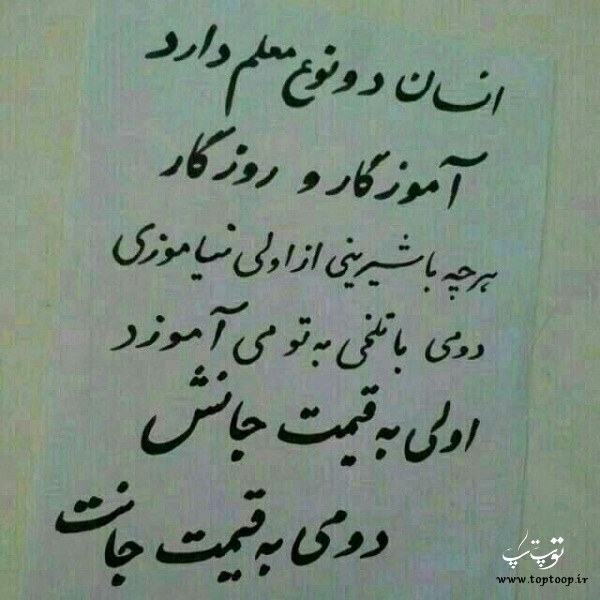 انسان دو نوع معلم دارد
آموزگار و روزگار
هرچه با شیرینی از اولی نیاموزی
دومی با تلخی به تو می آموزد
اولی به قیمت جانش
دومی به قیمت جانت
توپ تاپ
www.toptoop.ir